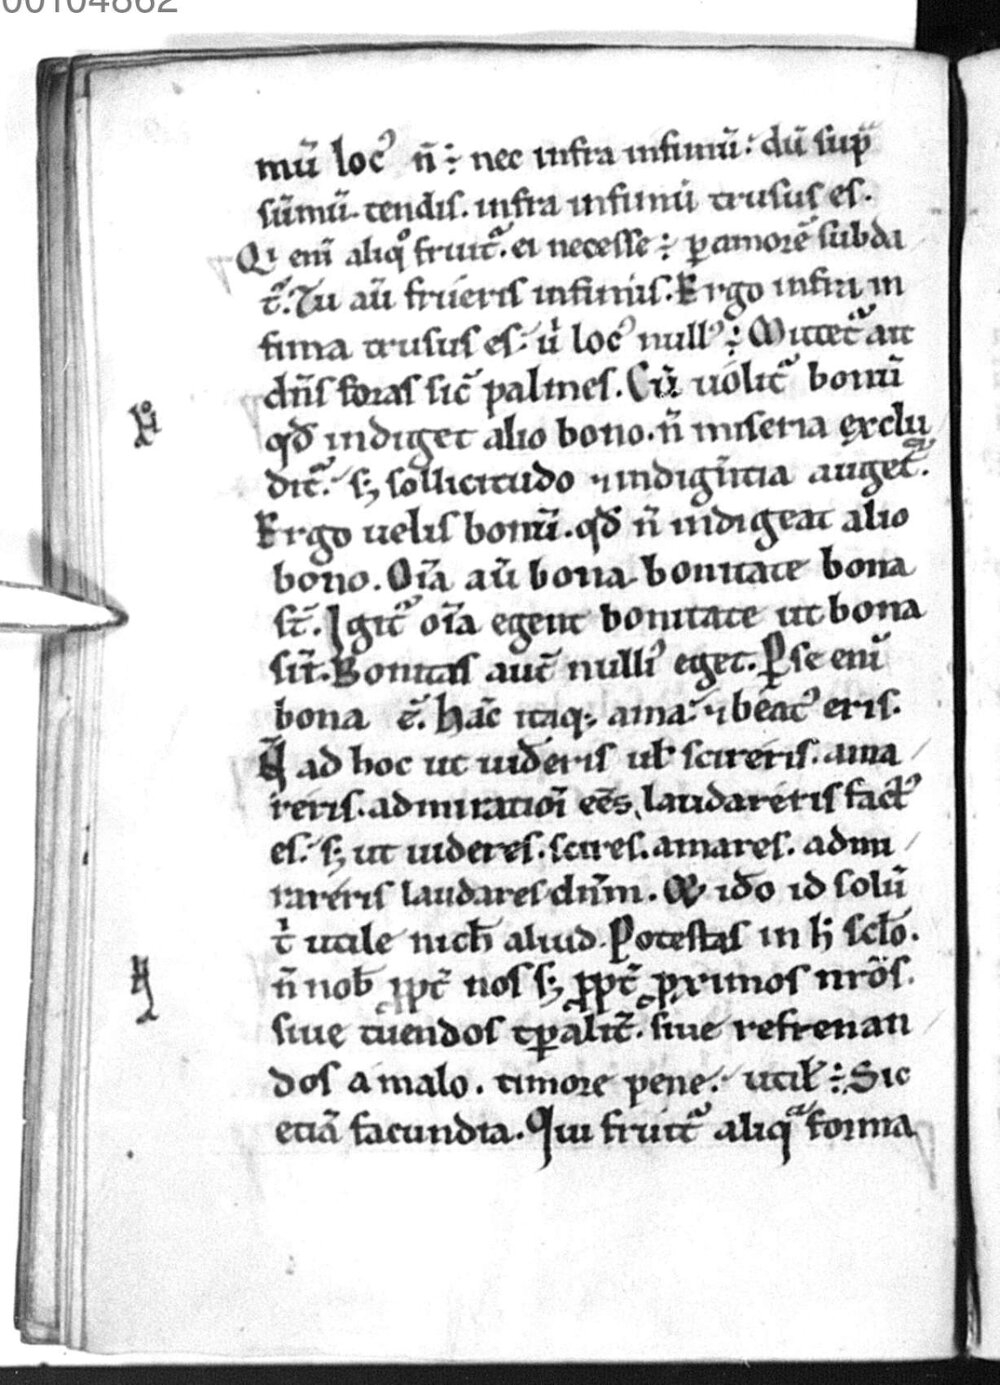 00104862
mū locꝰ n̄ ÷ nec infra infimū. dū sup̄
sūmū. tendis. infra infimū trusus es.
Qi enī aliqͦ fruit᷑. ei necesse ÷ ꝑ amorē subda
t᷑. Tu aū frueris infimis. Ergo infra in
fima trusus es. ů locꝰ nullꝰ ÷ Mittet᷑ ait
dn̄s foras sic̄ palmes. Cū uolit᷑ bonū
qđ indiget alio bono. n̄ miseria exclu
dit᷑. sꝫ sollicitudo ⁊ indigītia auget᷑.
Ergo uelis bonū. qđ n̄ indigeat alio
bono. Oīa aū bona bonitate bona
st̄. Igit᷑ oīa egent bonitate ut bona
sint. Bonitas aut̄ nulliꝰ eget. Ꝑ se enī
bona ē. hāc itaqꝫ ama. ⁊ beatꝰ eris.
N̄ ad hoc ut uideris ut̄ scireris. ama
reris. admiratioī eēs, laudareris factꝰ
es. sꝫ ut uideres. scires. amares. admi
rareris laudares dn̄m. Et iđo id solū
t̓ utile nich̄ aliud. Potestas in h̓ sclō.
n̄ nob̄ ꝓpt̄ nos sꝫ ꝓpt̄ ꝓximos nrōs.
siue tuendos tꝑalit̄. siue refrenan
dos a malo. timore pene. utił ÷ Sic
etiā facundia. Qui fruit᷑ aliqᷓ forma